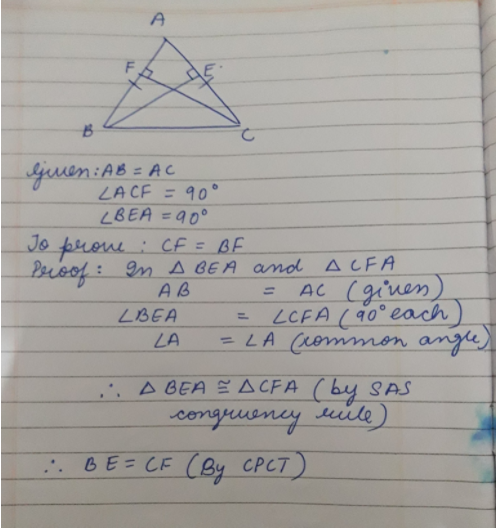 A
F E
B C
Given: AB = AC
∠ACF = 90°
∠BEA = 90°
To prove: CF = BF
Proof: In △ BEA and △ CFA
AB = AC (given)
∠BEA = ∠CFA (90° each)
∠A = ∠A (common angle)
∴ △ BEA ≅ △CFA (by SAS
congruency rule)
∴ BE = CF (By CPCT)